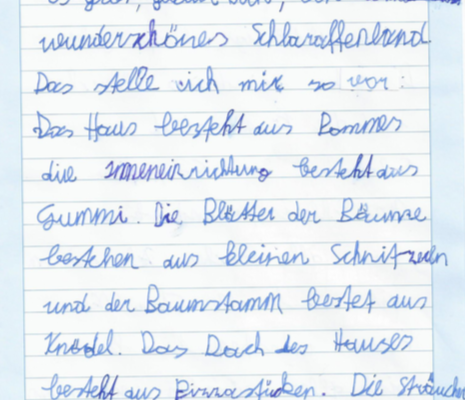 wunderschönes Schlaraffenland
Das stelle ich mir so vor:
Das Haus besteht aus Pommes
die Inneneinrichtung besteht aus
Gummi. Die Blätter der Bäume
bestehen aus kleinen Schnitzeln
und der Baumstamm bestet aus
Knödel. Das Dach des Hauses
besteht aus Pizzastücken. Die